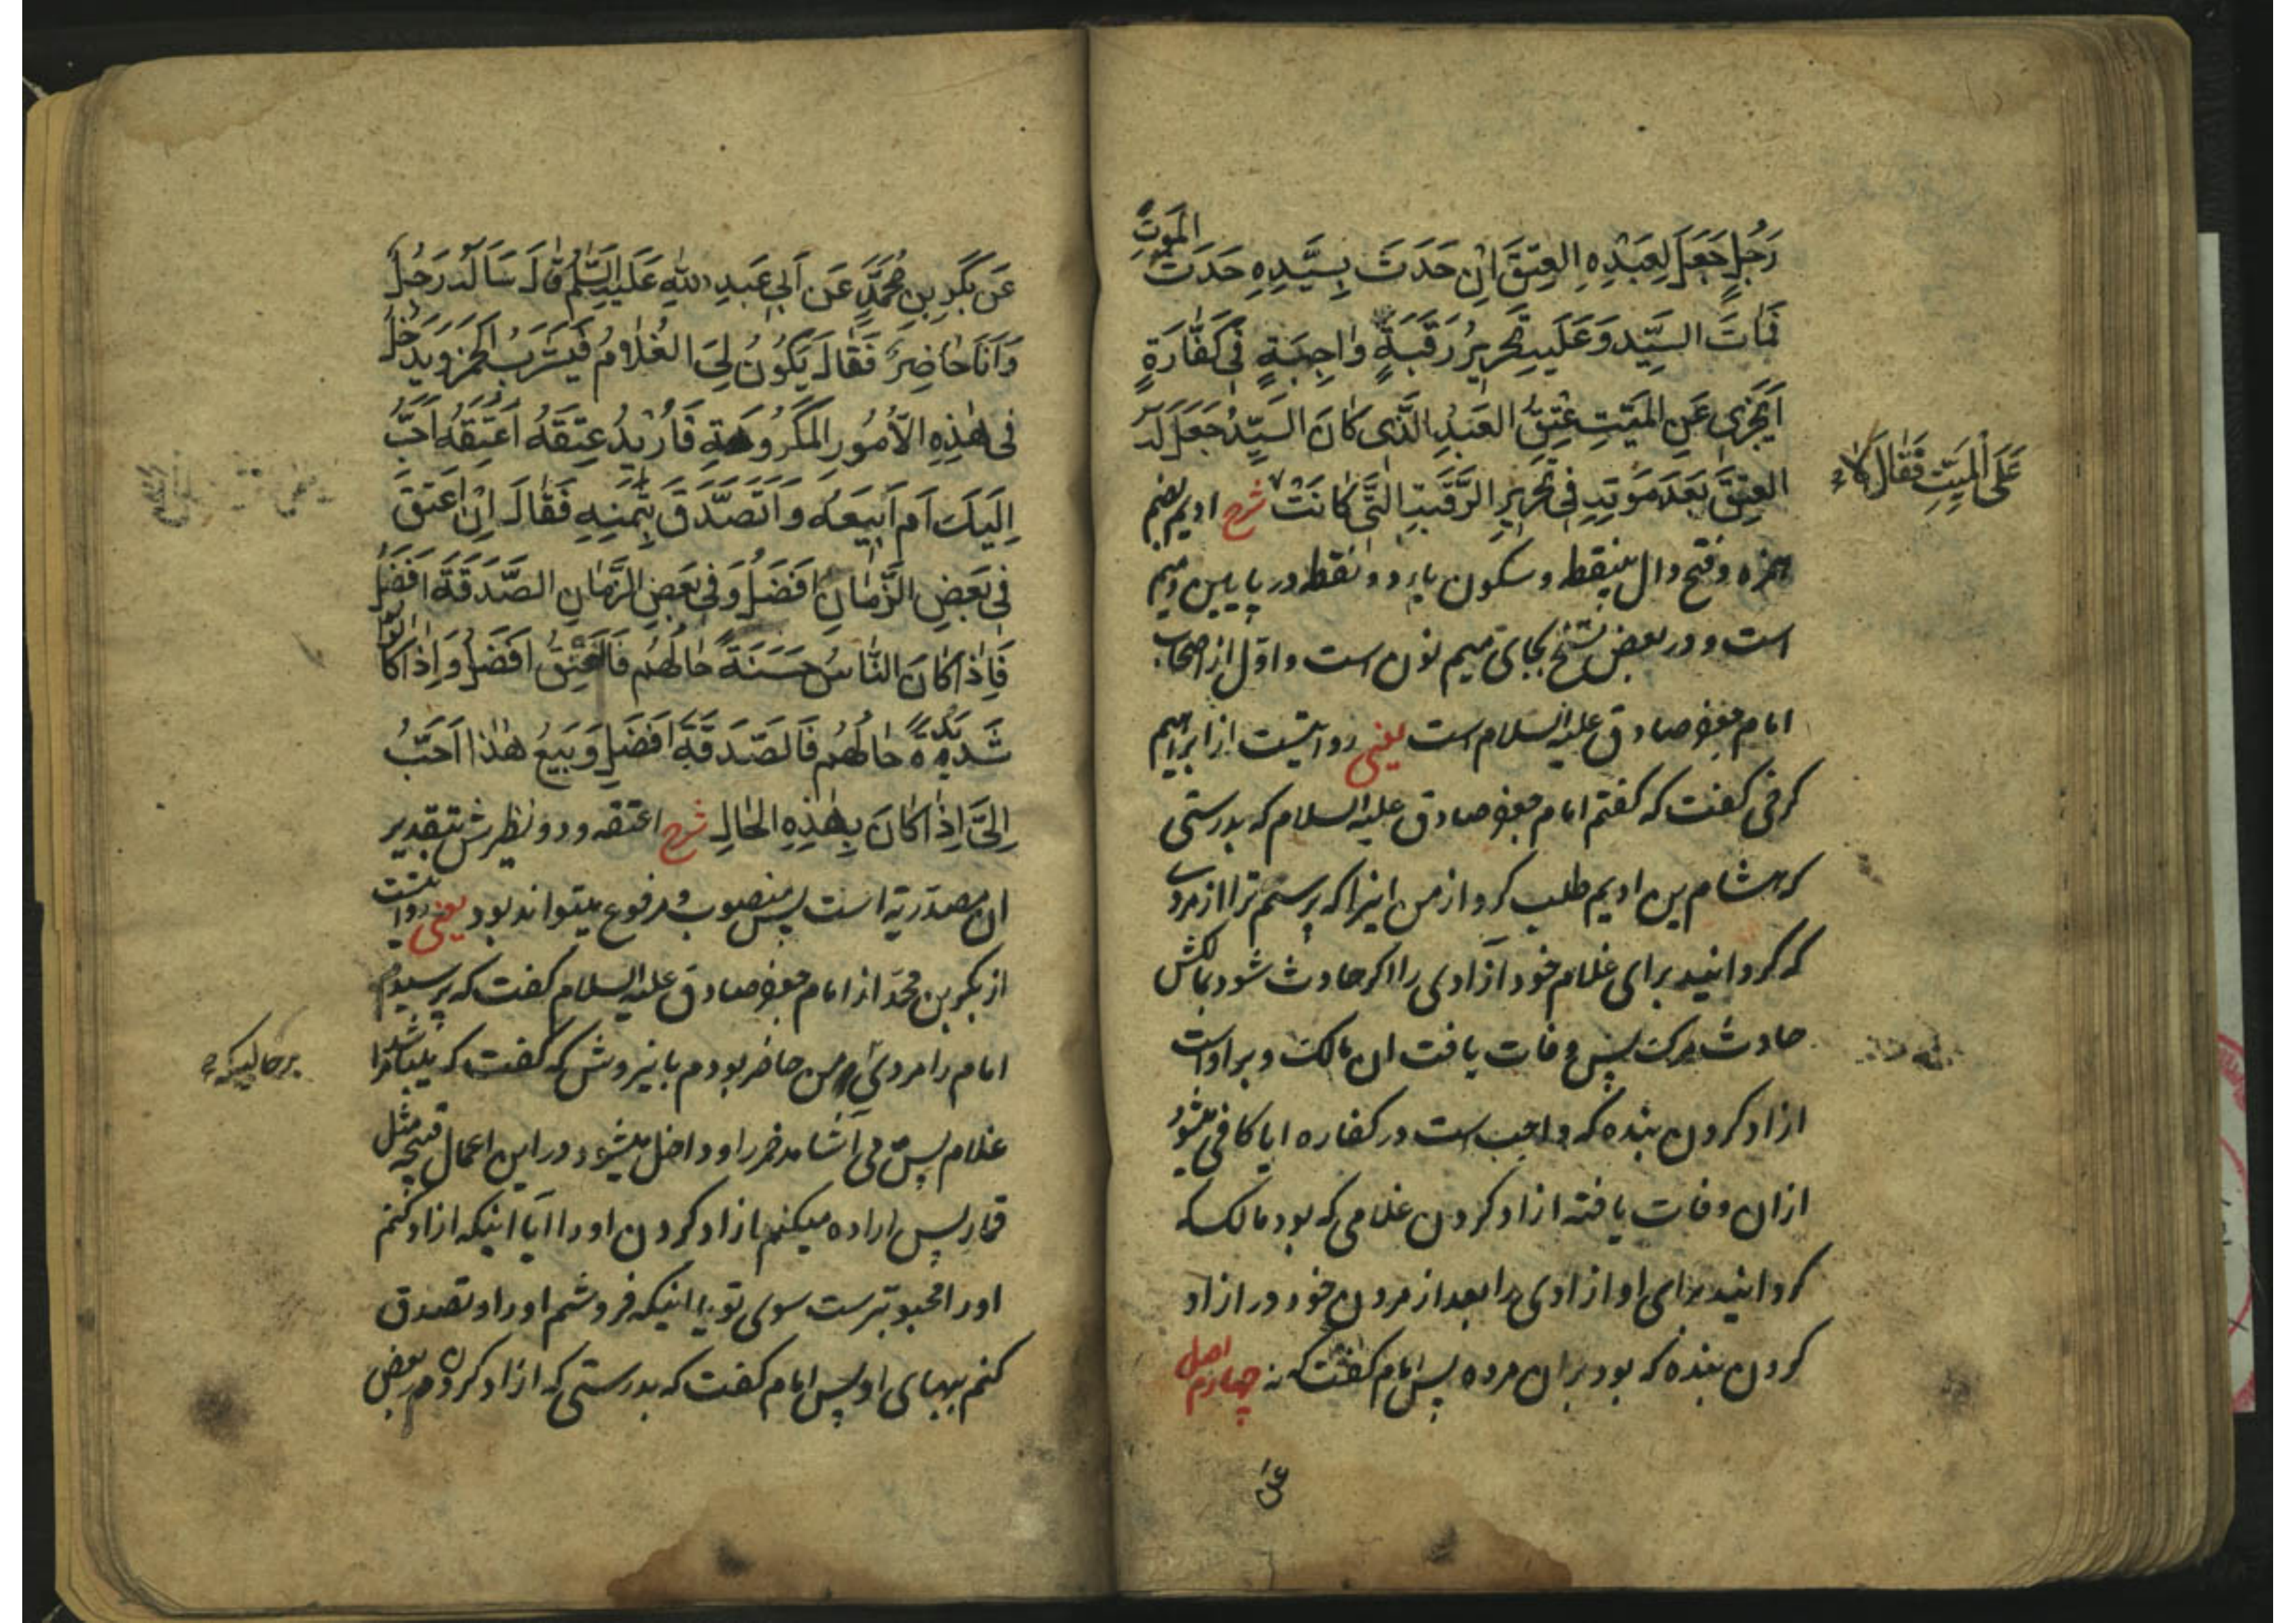 رَجُلٍ جَعَلَ لِعَبْدِهِ العِتقَ اِن حَدَثَ بِسَيِّدِهِ حَدَثُ المَوتِ
فَمَاتَ السَيِّد وَعَلَيهِ تَحرِيرُ رَقَبَةٍ وٰاجِبَةٍ فى كَفّٰارَةٍ
اَيَجزى عَنِ المَيّتِ عِتقُ العَبدِ الَّذى كٰانَ السَيِّدُ جَعَلَ لَهُ
العِتقَ بَعدَ مَوتِهِ فى تَحرِيرِ الرَّقَبَةِ الَّتى كٰانَتْ شرح اديم بضم
عَلَى المَيِّتِ فَقٰالَ لاٰ
همزه وفتح دال بینقطه وسکون یاء دو نقطه در پایین ومیم
است ودر بعض نسخ بجای میم نون است و اوّل از اصحاب
امام جعفر صادق علیه السلام است یعنی روایتست از ابراهیم
کرخی گفت که گفتم امام جعفر صادق علیه السلام که بدرستی
که هشام بن ادیم طلب کرد از من اینرا که پرسم ترا از مردی
که گردانید برای غلام خود آزادی را اگر حادث شود بمالکش
حادث مرگ پس وفات یافت ان مالک و بر اوست
ازاد کردن بنده که واجب است در کفاره ایا کافی میشود
ازان وفات یافته ازاد کردن غلامی که بود مالک که
گردانید برای او ازادی را بعد از مردن خود در ازاد
کردن بنده که بود بران مرده پس امام گفت که نه اصل چهارم
عن
عَن بَكرِ بنِ مُحَمَّدٍ عَن اَبى عَبدِ اللهِ عَلَيهِ السَّلٰم قٰالَ سَأَلَهُ رَجُلٌ
وَاَنَا حٰاضِرٌ فَقٰالَ يَكُونُ لِىَ الغُلاٰمُ فَيَشرَبُ الخَمرَ وَيَدخُلُ
فى هٰذِهِ الاُمُورِ المَكرُوهَةِ فَاُرِيدُ عِتقَهُ اَعتِقُهُ اَحَبُّ
اِلَيكَ اَم اَبِيعَهُ وَاَتَصَدَّقَ بِثَمَنِهِ فَقٰالَ اِن اَعتَقَ
فى بَعضِ الزَّمٰانِ اَفضَلُ وَفى بَعضِ الزَّمٰانِ الصَّدَقَةُ اَفضَلُ
فَاِذٰا كٰانَ النّٰاسُ حَسَنَةً حٰالُهُم فَالعِتقُ اَفضَلُ وَاِذٰا كٰانُوا
شَدِيدَةً حٰالُهُم فَالصَدَقَةُ اَفضَل وَبَيعُ هٰذٰا اَحَبُّ
اِلَىَّ اِذٰا كٰانَ بِهٰذِهِ الحٰالِ شرح اعتقه ودو نظیرش بتقدیر
ان مصدریّه است پس منصوب و مرفوع میتواند بود یعنی روایتست
از بکر بن محمّد از امام جعفر صادق علیه السلام گفت که پرسید
امام را مردی ومن حاضر بودم باینروش که گفت که میباشد مرا
برحالیکه
غلام پس می اشامد خمر را و داخل میشود در این اعمال قبیحه مثل
قمار پس اراده میکنم ازاد کردن او را ایا اینکه ازاد کنم
اورا محبوبترست سوی تو یا اینکه فروشم اورا و تصدق
کنم ببهای او پس امام گفت که بدرستی که ازاد کردن در بعض